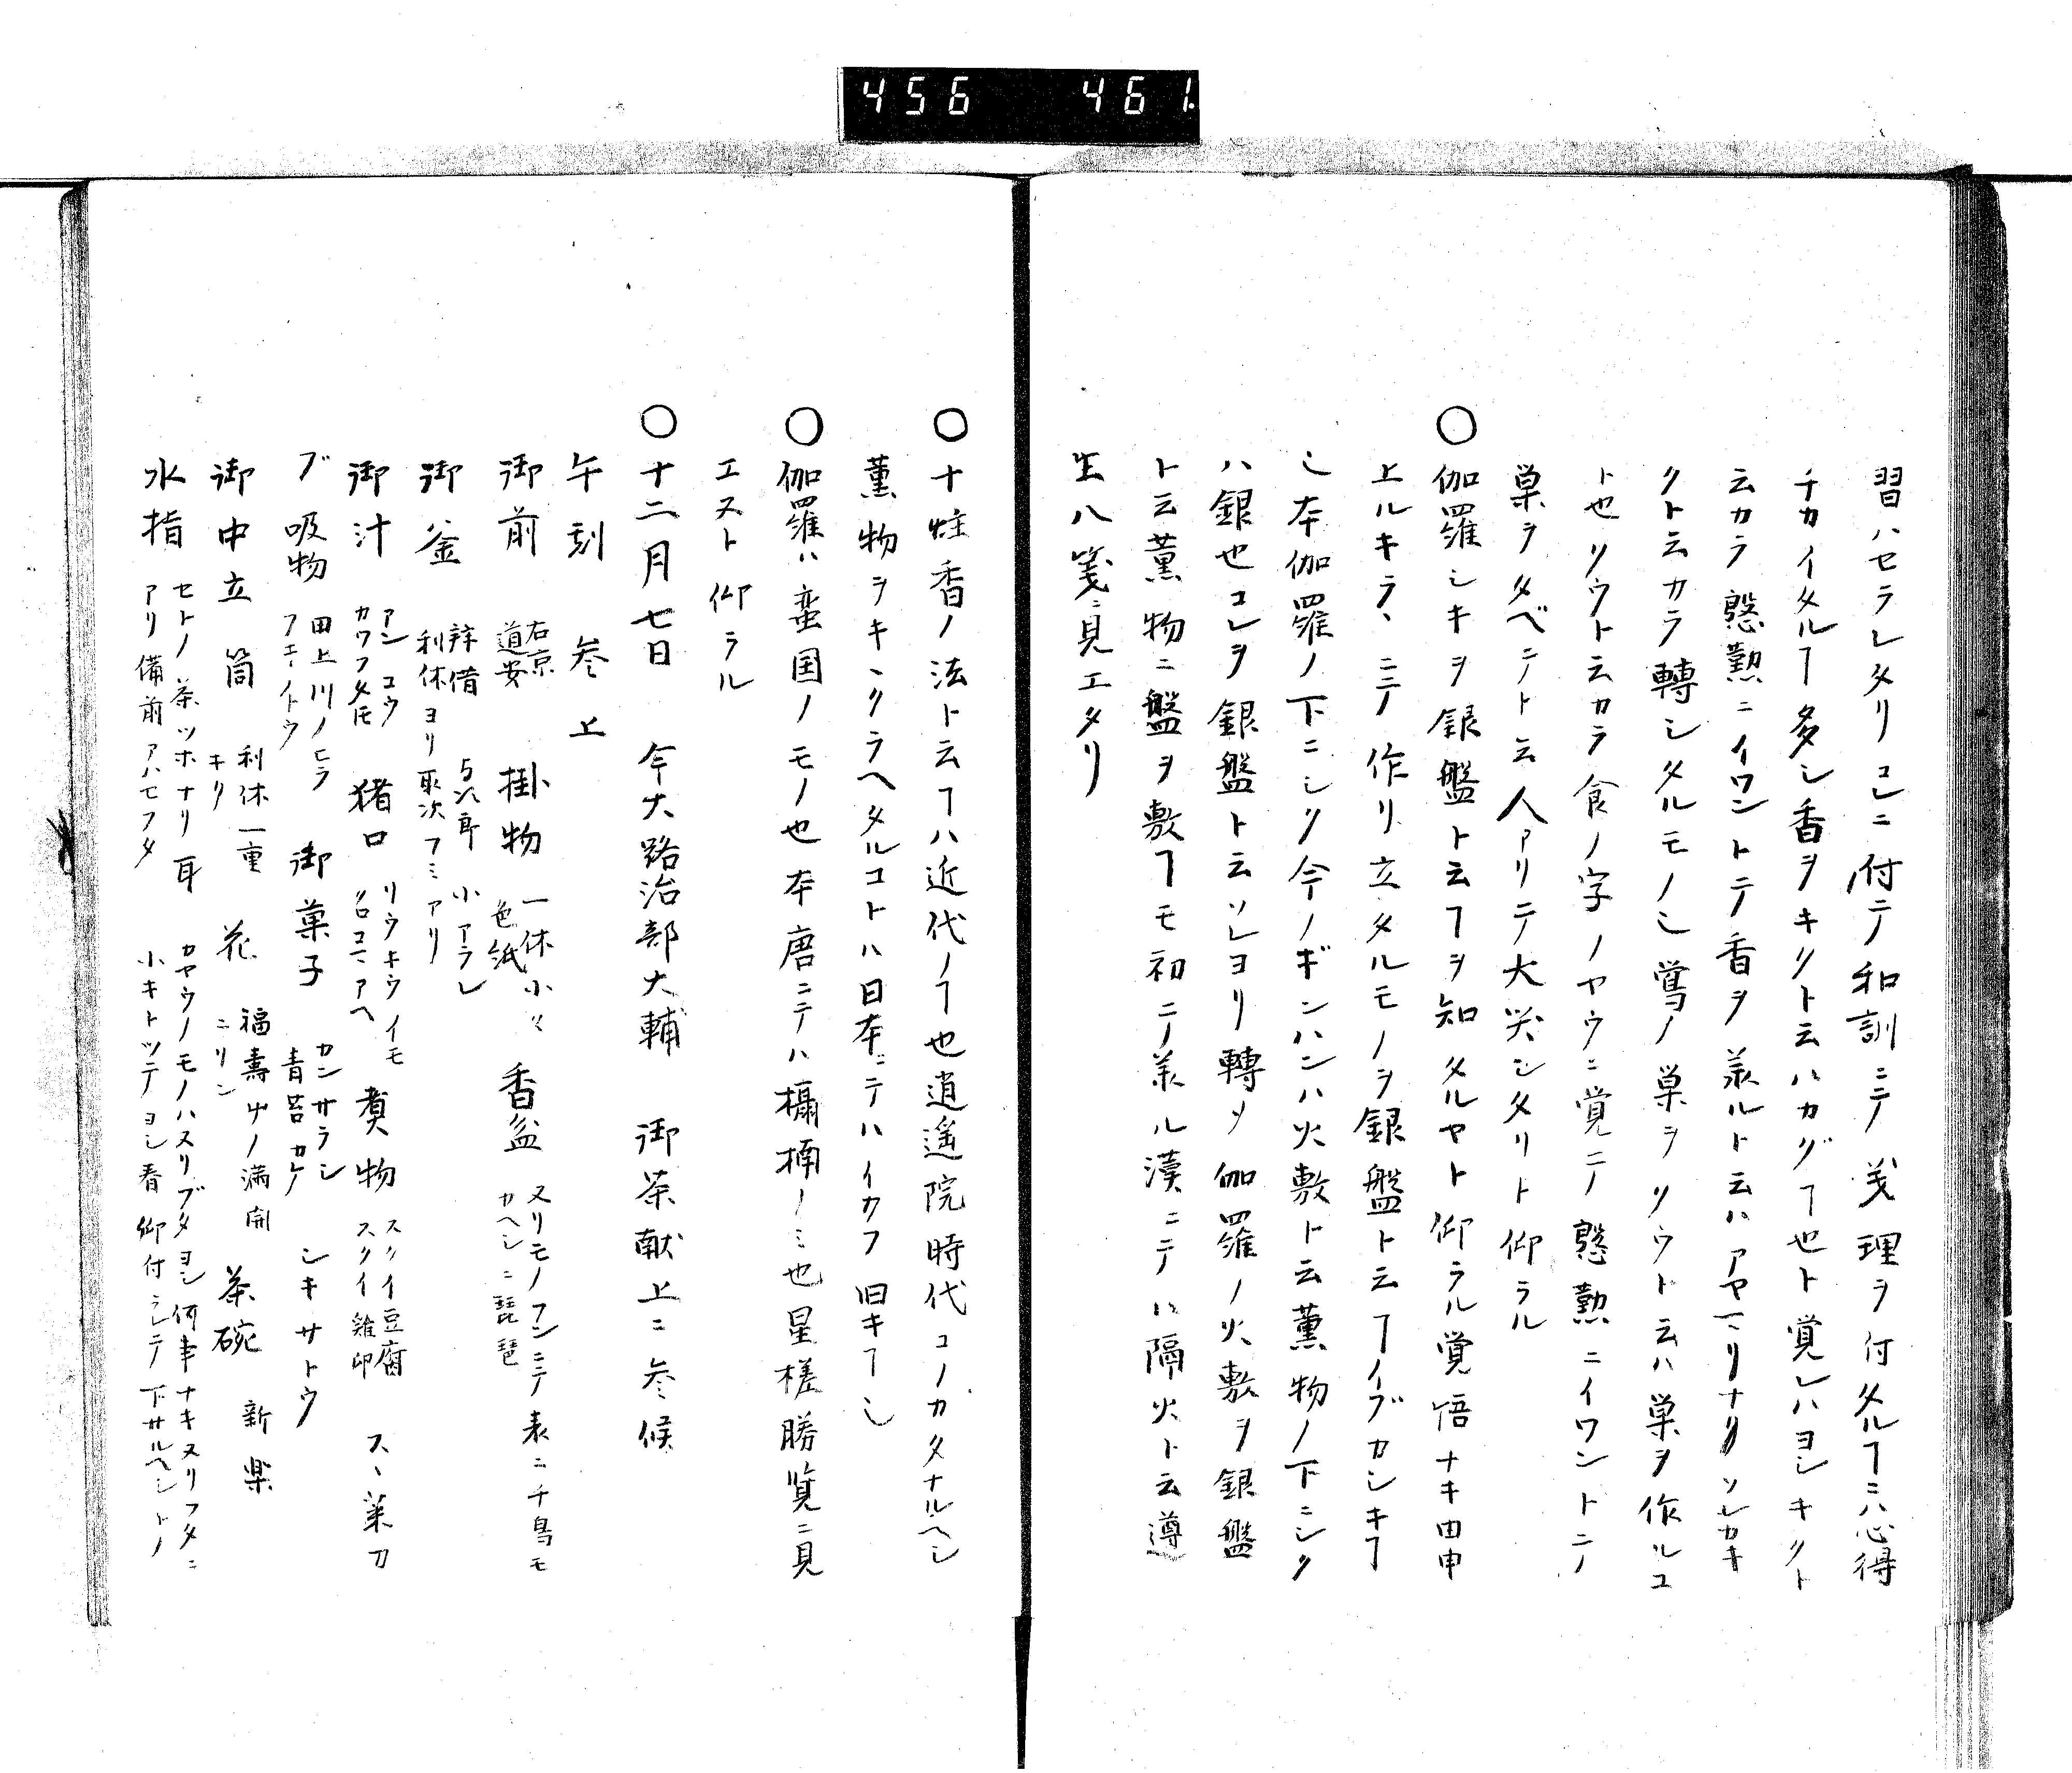 456 461.
習ハセラレタリコレニ付テ和訓ニテ義理ヲ付タルヿニハ心得
チカイタルヿ多シ香ヲキクト云ハカグヿ也ト覚レハヨシキクト
云カラ慇懃ニイワントテ香ヲ羕ルト云ハアヤマリナリソレカキ
クト云カラ轉シタルモノ也鴬ノ巣ヲクウト云ハ巣ヲ作ルコ
ト也クウト云カラ食ノ字ノヤウニ覚ニテ慇懃ニイワントニテ
巣ヲタベニテト云人アリテ大笑シタリト仰ラル
〇伽羅シキヲ銀盤ト云ヿヲ知タルヤト仰ラル覚悟ナキ由申
上ルキラヽニテ作リ立タルモノヲ銀盤ト云ヿイブカシキヿ
也本伽羅ノ下ニシク今ノギンハンハ火敷ト云薫物ノ下ニシク
ハ銀也コレヲ銀盤ト云ソレヨリ轉シテ伽羅ノ火敷ヲ銀盤
ト云薫物ニ盤ヲ敷ヿモ初ニテ羕ル漢ニテハ隔火ト云遵
生八箋ニ見エタリ
〇十炷香ノ法ト云ヿハ近代ノヿ也逍遥院時代コノカタナルヘシ
薫物ヲキヽクラヘタルコトハ日本ニテハイカフ旧キヿ也
〇伽羅ハ蛮国ノモノ也本唐ニテハ欇楠ノミ也星槎勝覧ニ見
エスト仰ラル
〇十二月七日 今大路治部大輔 御茶献上ニ参候
午刻 参上
御前 右京 道安 掛物 一休小々 色紙 香盆 ヌリモノフンニテ表ニ千鳥モ カヘシニ琵琶
御釜 辨借 与次郎 小アラレ 利休ヨリ取次フミアリ
御汁 アンコウ カワフタモ 猪口 リウキウイモ クロコマアヘ 煑物 スクイ豆腐 スクイ雞卵 スヽ菜刀
ブ吸物 田上川ノヒラ フキノトウ 御菓子 カンサラシ 青苔カケ シキサトウ
御中立 筒 利休一重 キリ 花 福寿艸ノ満開 ニリン 茶碗 新楽
水指 セトノ茶ツホナリ耳 アリ備前アハセフタ カヤウノモノハスリブタヨシ何事ナキヌリフタニ 小キトツテヨシ看仰付ラレテ下サルヘシトノ